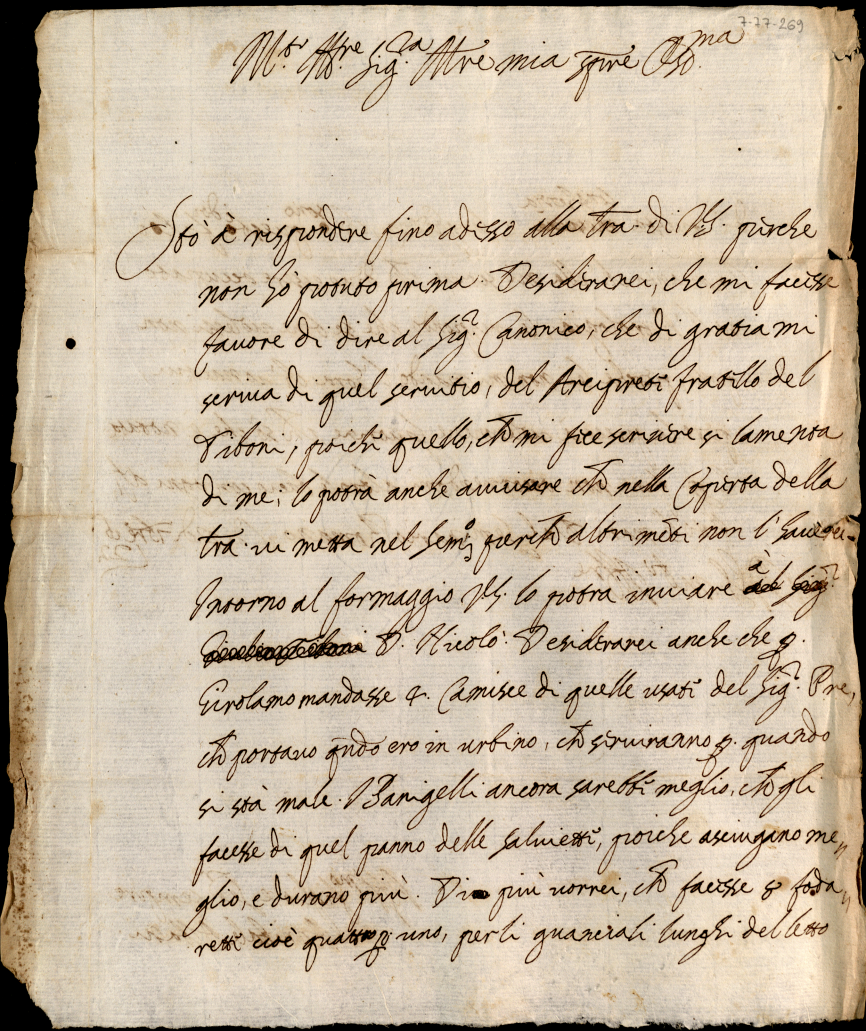 7-77-269
M.to Ill.re Sig.ra M̃re mia sempre Oss.ma
Stò à rispondere fino adesso alla l̃ra di V.S. perche
non hò potuto prima. Desiderarei, che mi facesse
favore di dire al Sig.r Canonico, che di gratia mi
scriva di quel servitio, del Arciprete fratello del
Tiboni, poiche quello, ch̃ mi fece scrivere si lamenta
di me; lo potrà anche avvisare ch̃ nella Coperta della
l̃ra vi metta nel Sem.o, perch̃ altrim̃ti non l'haverei.
Intorno al formaggio V.S. lo potra inviare à
D. Nicolò. Desiderarei anche che p.
Girolamo mandasse 4. Camisce di quelle usate del Sig.r Pre,
ch̃ portavo qñdo ero in urbino, ch̃ serviranno p. quando
si stà male. I Banigelli ancora sarebbe meglio, ch̃ gli
facesse di quel panno delle salviette, poiche asciugano me„
glio, e durano più. Di più vorrei, ch̃ facesse 8 foda„
rette cioè quattro p. uno, per li guanciali lunghi del letto